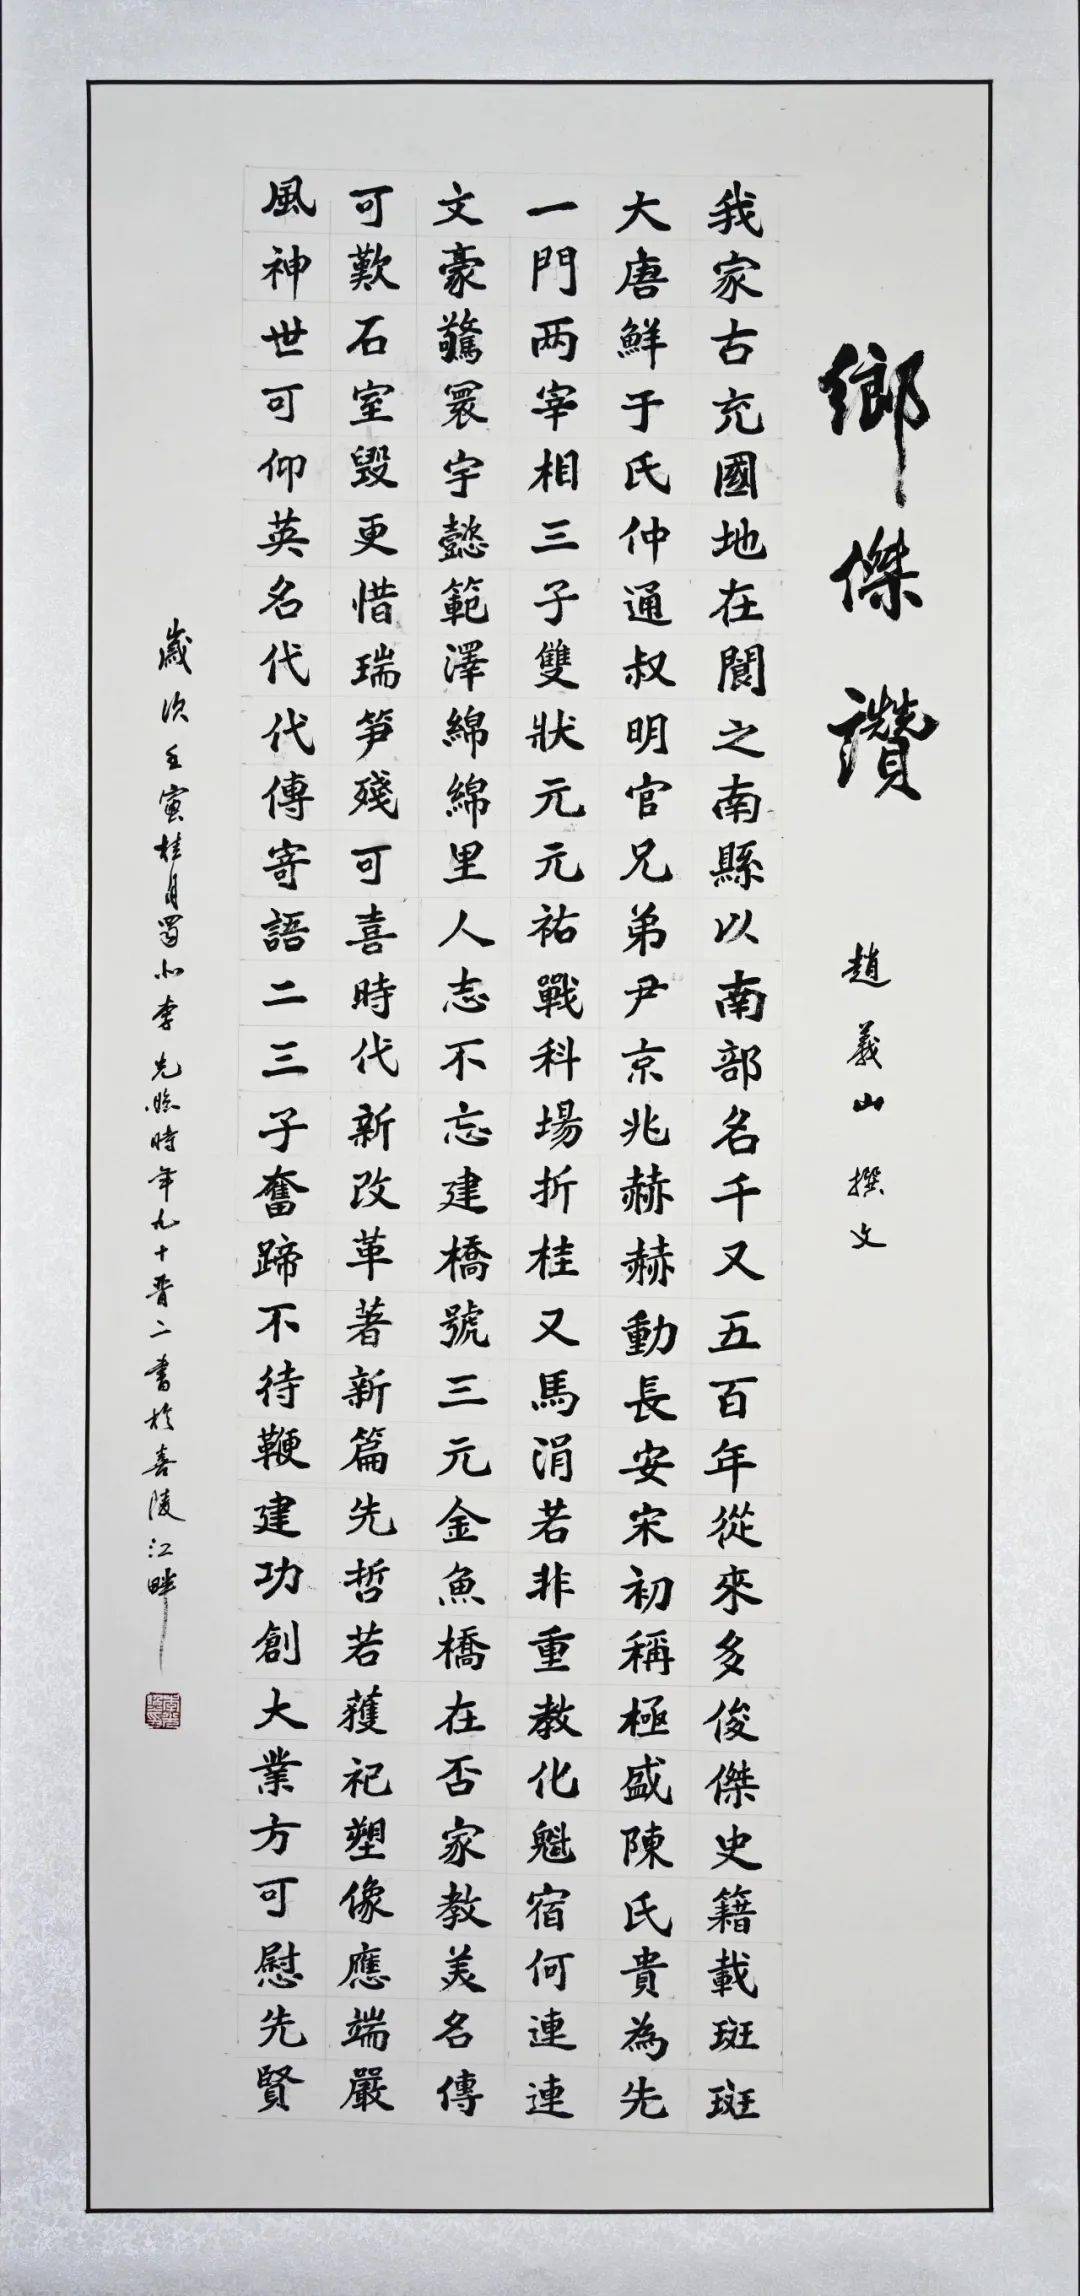 鄉傑讚　趙義山撰文
我家古充國地在閬之南縣以南部名千又五百年從來多俊傑史籍載斑斑
大唐鮮于氏仲通叔明官兄弟尹京兆赫赫動長安宋初稱極盛陳氏貴為先
一門两宰相三子雙狀元元祐戰科場折桂又馬涓若非重教化魁宿何連連
文豪驚寰宇懿範澤綿綿里人志不忘建橋號三元金魚橋在否家教美名傳
可歎石室毀更惜瑞筍殘可喜時代新改革著新篇先哲若獲祀塑像應端嚴
風神世可仰英名代代傳寄語二三子奮蹄不待鞭建功創大業方可慰先賢
歲次壬寅桂月蜀北李先臨時年九十晋二書於嘉陵江畔